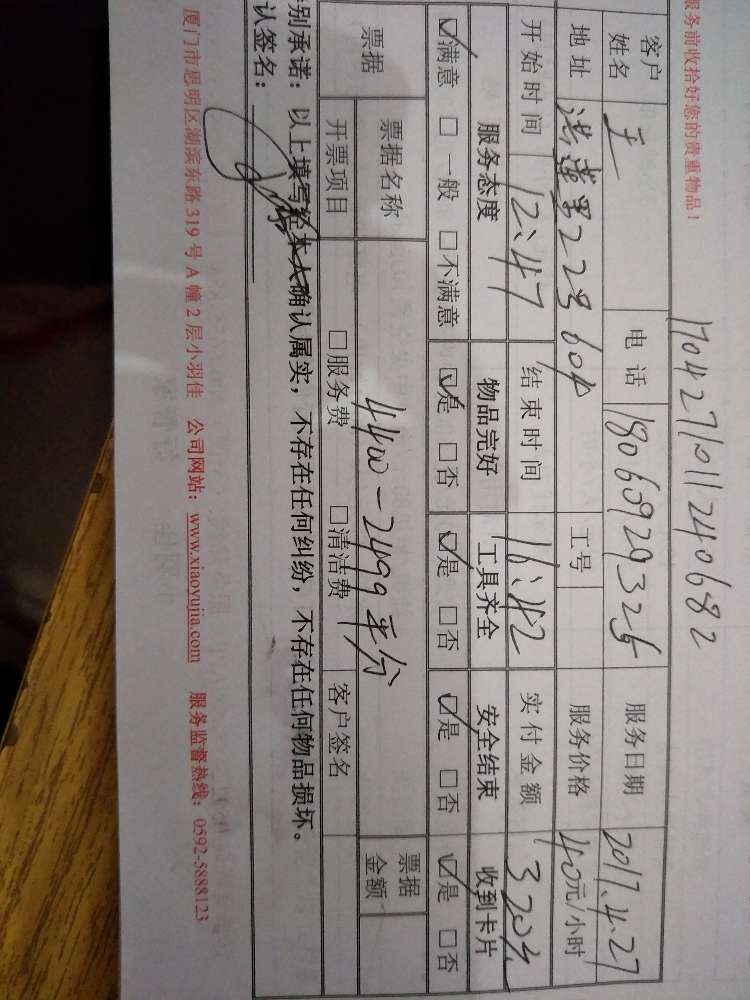 服务前收拾好您的贵重物品！
170427101124068 2
客户姓名 王 电话 18065929325 服务日期 2017.4.27
地址 洪莲里223 604 工号 服务价格 40元/小时
开始时间 12:47 结束时间 16:42 实付金额 320元
服务态度 物品完好 工具齐全 安全结束 收到卡片
☑满意 □一般 □不满意 ☑是 □否 ☑是 □否 ☑是 □否 ☑是 □否
票据 票据名称 4400-2499平分 票据金额
开票项目 □服务费 □清洁费 客户签名
别承诺：以上填写经本人确认属实，不存在任何纠纷，不存在任何物品损坏。
认签名：
厦门市思明区湖滨东路319号A幢2层小羽佳 公司网站：www.xiaoyujia.com 服务监督热线：0592-5888123